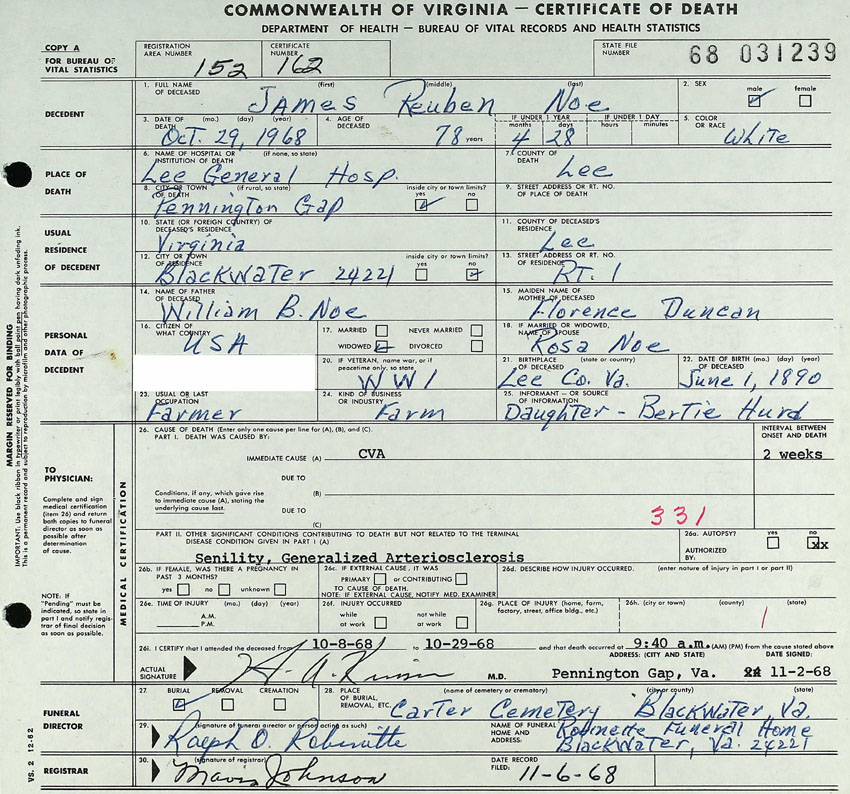 COMMONWEALTH OF VIRGINIA — CERTIFICATE OF DEATH
DEPARTMENT OF HEALTH — BUREAU OF VITAL RECORDS AND HEALTH STATISTICS
COPY A
FOR BUREAU OF
VITAL STATISTICS
REGISTRATION
AREA NUMBER 152
CERTIFICATE
NUMBER 162
STATE FILE
NUMBER 68 031239
DECEDENT
1. FULL NAME (first) (middle) (last)
OF DECEASED James Reuben Noe
2. SEX male female
3. DATE OF (mo.) (day) (year)
DEATH Oct. 29, 1968
4. AGE OF
DECEASED 78 years
IF UNDER 1 YEAR
months days
4 28
IF UNDER 1 DAY
hours minutes
5. COLOR
OR RACE White
PLACE OF
DEATH
6. NAME OF HOSPITAL OR (if none, so state)
INSTITUTION OF DEATH
Lee General Hosp.
7. COUNTY OF
DEATH Lee
8. CITY OR TOWN (if rural, so state) inside city or town limits?
OF DEATH yes no
Pennington Gap
9. STREET ADDRESS OR RT. NO.
OF PLACE OF DEATH
USUAL
RESIDENCE
OF DECEDENT
10. STATE (OR FOREIGN COUNTRY) OF
DECEASED'S RESIDENCE
Virginia
11. COUNTY OF DECEASED'S
RESIDENCE Lee
12. CITY OR TOWN inside city or town limits?
OF RESIDENCE yes no
Blackwater 24221
13. STREET ADDRESS OR RT. NO.
OF RESIDENCE RT. 1
PERSONAL
DATA OF
DECEDENT
14. NAME OF FATHER
OF DECEASED
William B. Noe
15. MAIDEN NAME OF
MOTHER OF DECEASED
Florence Duncan
16. CITIZEN OF
WHAT COUNTRY USA
17. MARRIED NEVER MARRIED
WIDOWED DIVORCED
18. IF MARRIED OR WIDOWED,
NAME OF SPOUSE
Rosa Noe
20. IF VETERAN, name war, or if
peacetime only, so state
WW1
21. BIRTHPLACE (state or country)
OF DECEASED
Lee Co. Va.
22. DATE OF BIRTH (mo.) (day) (year)
OF DECEASED
June 1, 1890
23. USUAL OR LAST
OCCUPATION
Farmer
24. KIND OF BUSINESS
OR INDUSTRY Farm
25. INFORMANT — OR SOURCE
OF INFORMATION
Daughter - Bertie Hurd
MARGIN RESERVED FOR BINDING
IMPORTANT: Use black ribbon in typewriter or print legibly, with ball point pen having dark unfading ink.
This is a permanent record and subject to reproduction by microfilm and other photographic process.
TO
PHYSICIAN:
Complete and sign
medical certification
(item 26) and return
both copies to funeral
director as soon as
possible after
determination
of cause.
NOTE: IF
"Pending" must be
indicated, so state in
part I and notify regis-
trar of final decision
as soon as possible.
MEDICAL CERTIFICATION
26. CAUSE OF DEATH (Enter only one cause per line for (A), (B), and (C).
PART I. DEATH WAS CAUSED BY:
INTERVAL BETWEEN
ONSET AND DEATH
IMMEDIATE CAUSE (A) CVA
2 weeks
DUE TO
Conditions, if any, which gave rise
to immediate cause (A), stating the
underlying cause last.
(B)
DUE TO
(C)
331
PART II. OTHER SIGNIFICANT CONDITIONS CONTRIBUTING TO DEATH BUT NOT RELATED TO THE TERMINAL
DISEASE CONDITION GIVEN IN PART I (A)
Senility, Generalized Arteriosclerosis
26a. AUTOPSY? yes no
AUTHORIZED
BY: xx
26b. IF FEMALE, WAS THERE A PREGNANCY IN
PAST 3 MONTHS?
yes no unknown
26c. IF EXTERNAL CAUSE, IT WAS
PRIMARY or CONTRIBUTING
TO CAUSE OF DEATH.
NOTE: IF EXTERNAL CAUSE, NOTIFY MED. EXAMINER
26d. DESCRIBE HOW INJURY OCCURRED. (enter nature of injury in part I or part II)
26e. TIME OF INJURY (mo.) (day) (year)
A.M.
P.M.
26f. INJURY OCCURRED
while not while
at work at work
26g. PLACE OF INJURY (home, farm,
factory, street, office bldg., etc.)
26h. (city or town) (county) (state)
26i. I CERTIFY that I attended the deceased from 10-8-68 to 10-29-68 and that death occurred at 9:40 a.m. (AM) (PM) from the cause stated above
ADDRESS: (CITY AND STATE) DATE SIGNED:
ACTUAL
SIGNATURE M.D. Pennington Gap, Va. 11-2-68
FUNERAL
DIRECTOR
27. BURIAL REMOVAL CREMATION
28. PLACE (name of cemetery or crematory) (city or county) (state)
OF BURIAL,
REMOVAL, ETC. Carter Cemetery Blackwater, Va.
29. (signature of funeral director or person acting as such)
Ralph O. Robinette
NAME OF FUNERAL
HOME AND
ADDRESS: Robinette Funeral Home
Blackwater, Va. 24221
REGISTRAR
30. (signature of registrar)
Mavis Johnson
DATE RECORD
FILED: 11-6-68
VS. 2 12-62